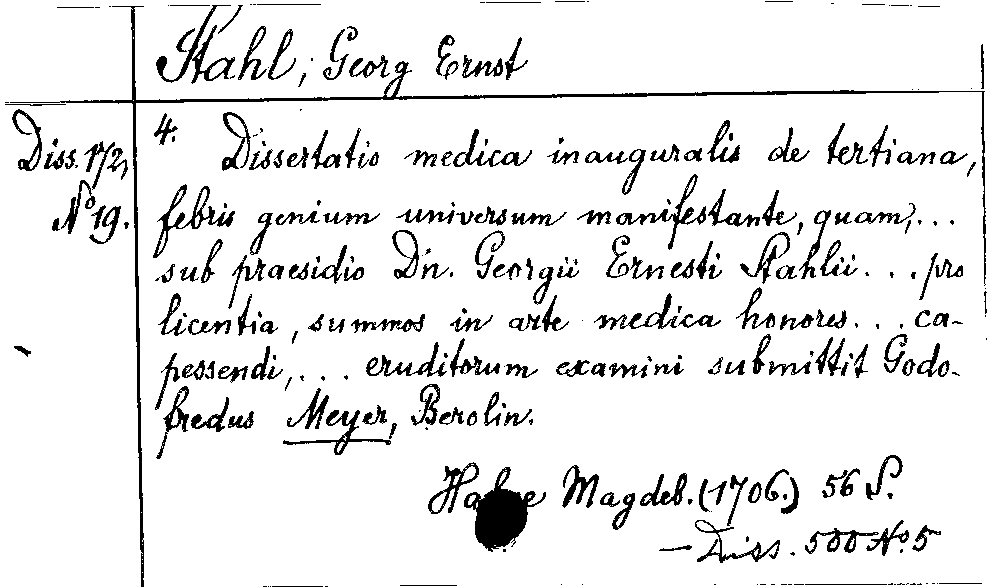 Stahl, Georg Ernst
Diss. 172,
No 19.
4. Dissertatio medica inauguralis de tertiana,
febris genium universum manifestante, quam, ...
sub praesidio Dn. Georgii Ernesti Stahlii ... pro
licentia, summos in arte medica honores ... ca-
pessendi, ... eruditorum examini submittit Godo-
fredus Meyer, Berolin.
Halae Magdeb. (1706.) 56 S.
— Diss. 500 No. 5